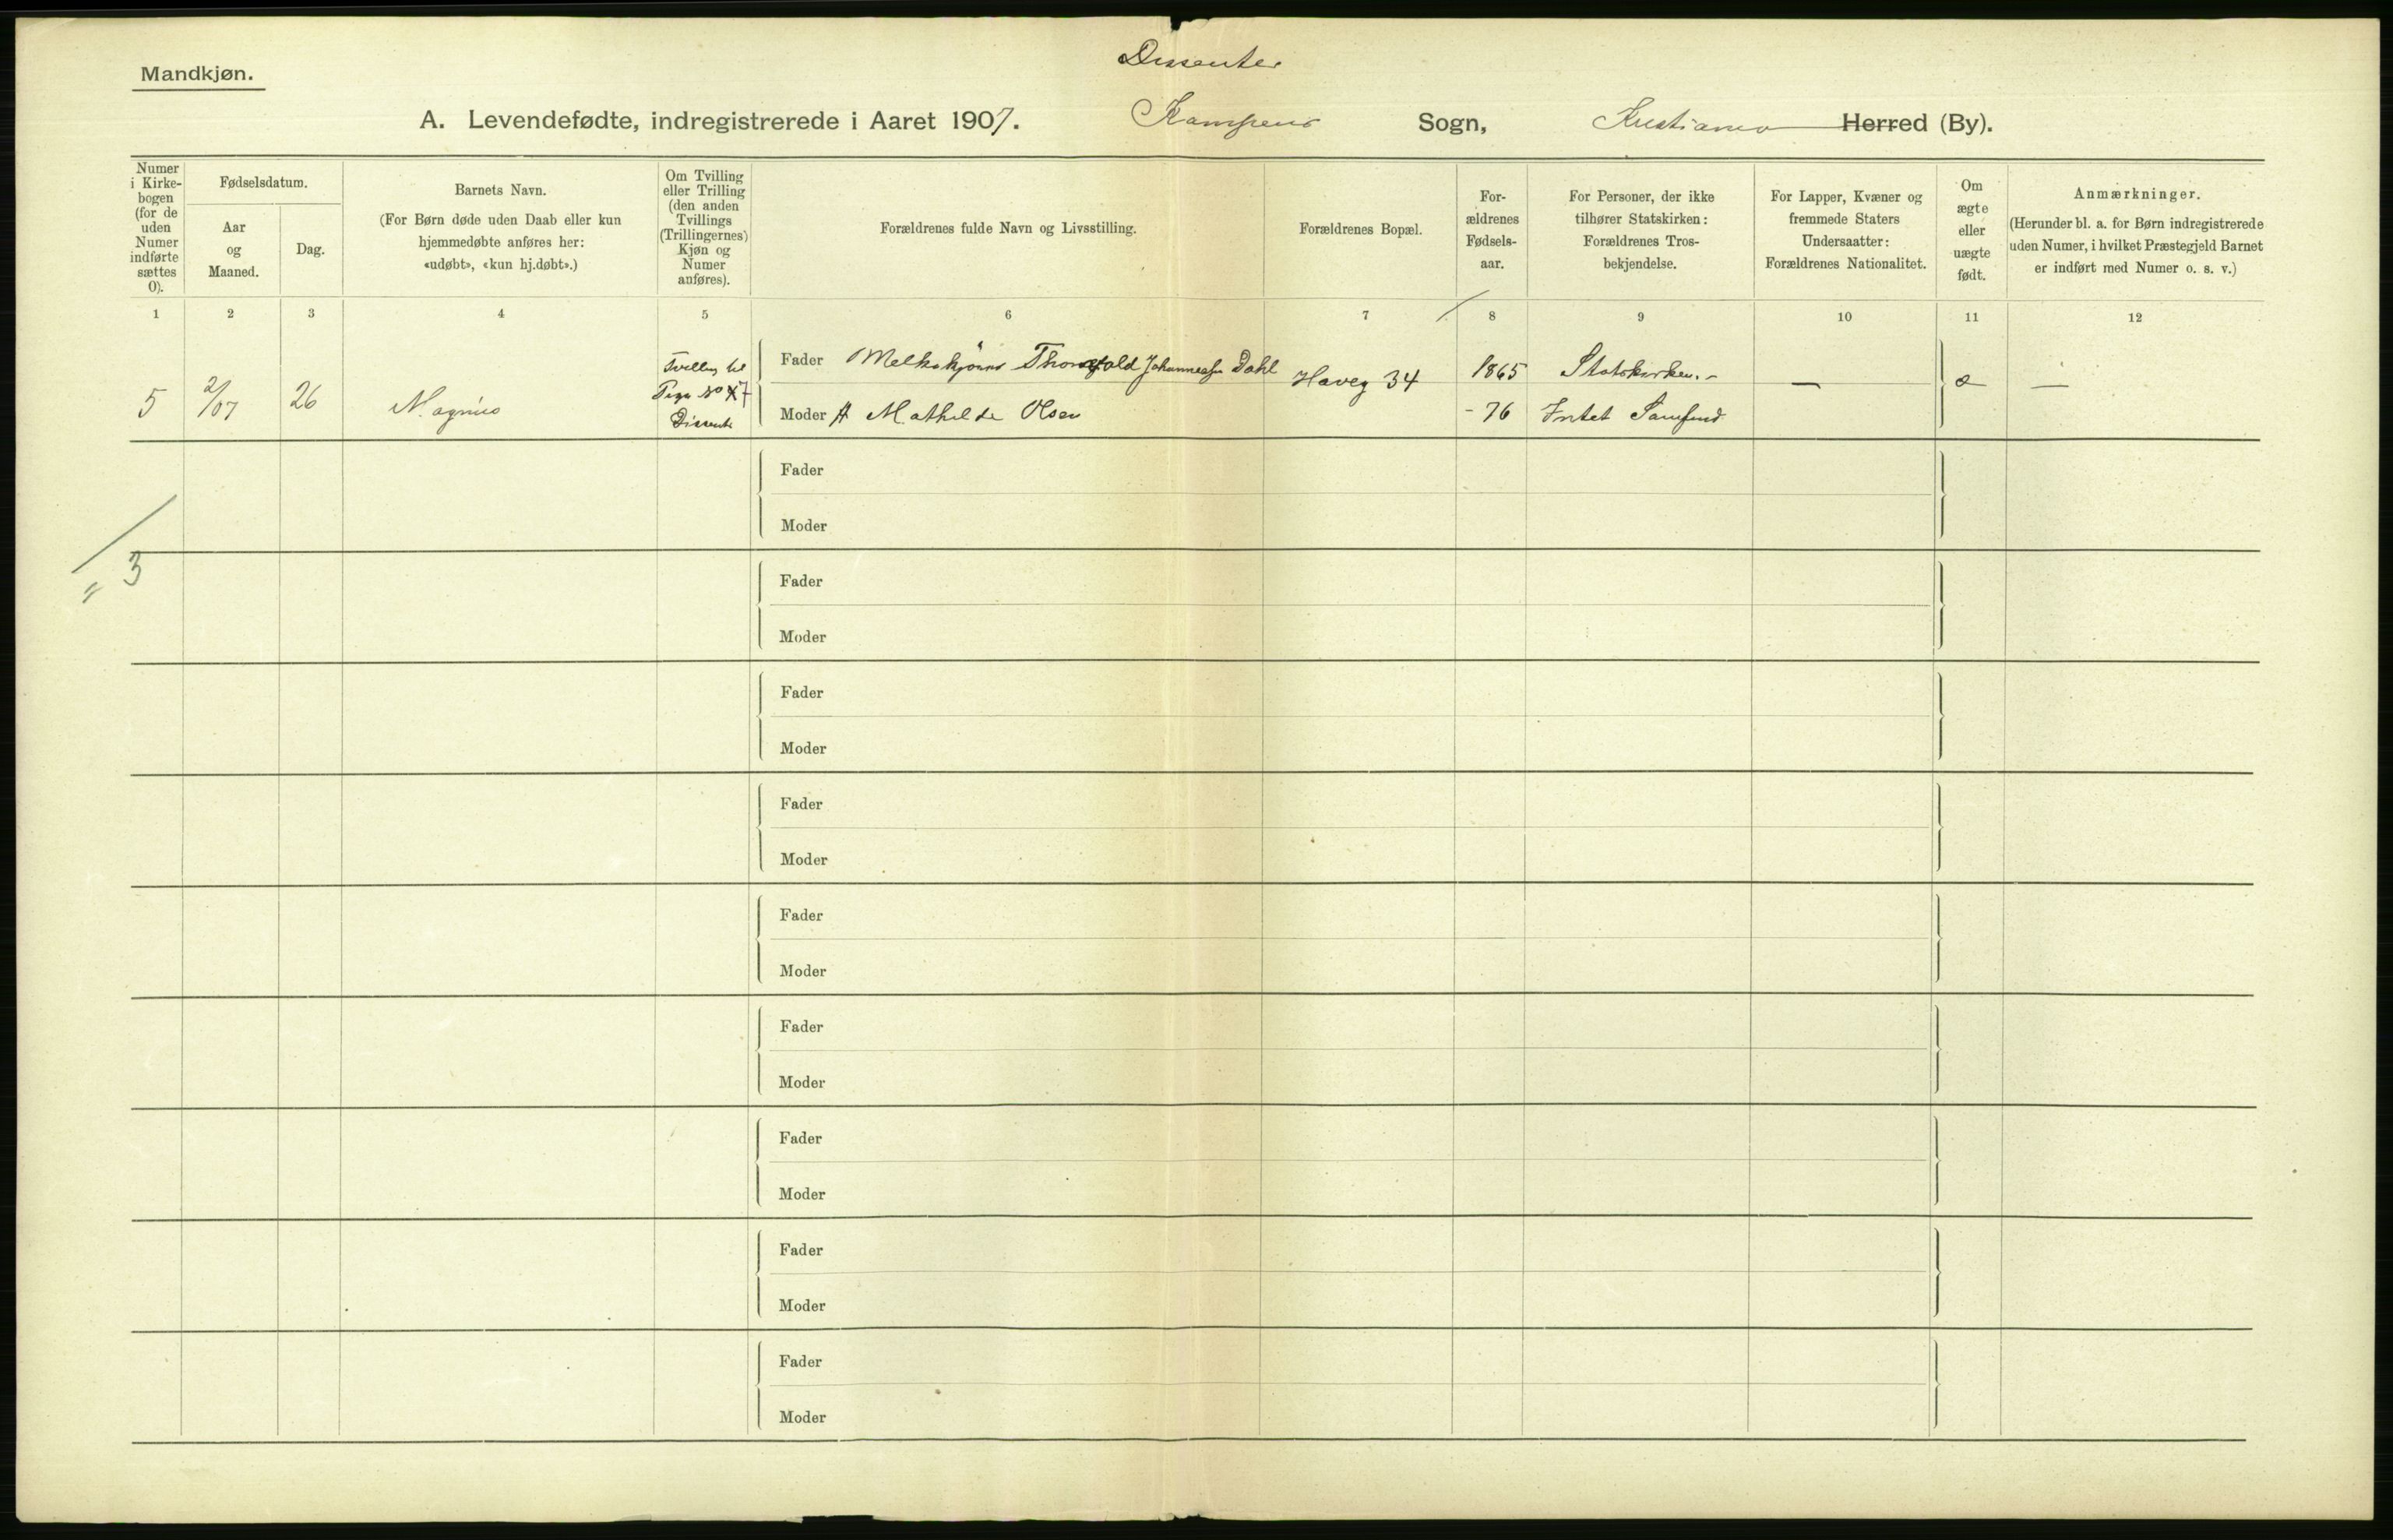 Mandkjøn.
Dissenter
A. Levendefødte, indregistrerede i Aaret 1907. Kampens Sogn, Kristiania Herred (By).
Numer i Kirke-bogen (for de uden Numer indførte sættes 0).
Fødselsdatum.
Aar og Maaned.
Dag.
Barnets Navn.
(For Børn døde uden Daab eller kun
hjemmedøbte anføres her:
«udøbt», «kun hj.døbt».)
Om Tvilling
eller Trilling
(den anden
Tvillings
(Trillingernes)
Kjøn og
Numer
anføres).
Forældrenes fulde Navn og Livsstilling.
Forældrenes Bopæl.
For-
ældrenes
Fødsels-
aar.
For Personer, der ikke
tilhører Statskirken:
Forældrenes Tros-
bekjendelse.
For Lapper, Kvæner og
fremmede Staters
Undersaatter:
Forældrenes Nationalitet.
Om
ægte
eller
uægte
født.
Anmærkninger.
(Herunder bl. a. for Børn indregistrerede
uden Numer, i hvilket Præstegjeld Barnet
er indført med Numer o. s. v.)
1 2 3 4 5 6 7 8 9 10 11 12
5 2/07 26 Magnus
Tvilling til
Pige No 7
Dissent
Fader Thorvald Johannesen Dahl
Moder A Mathilde Olsen
Haveg 34
1865 Statskirken. -
- 76 Intet Samfund
— æ —
Fader
Moder
" 3
Fader
Moder
Fader
Moder
Fader
Moder
Fader
Moder
Fader
Moder
Fader
Moder
Fader
Moder
Fader
Moder